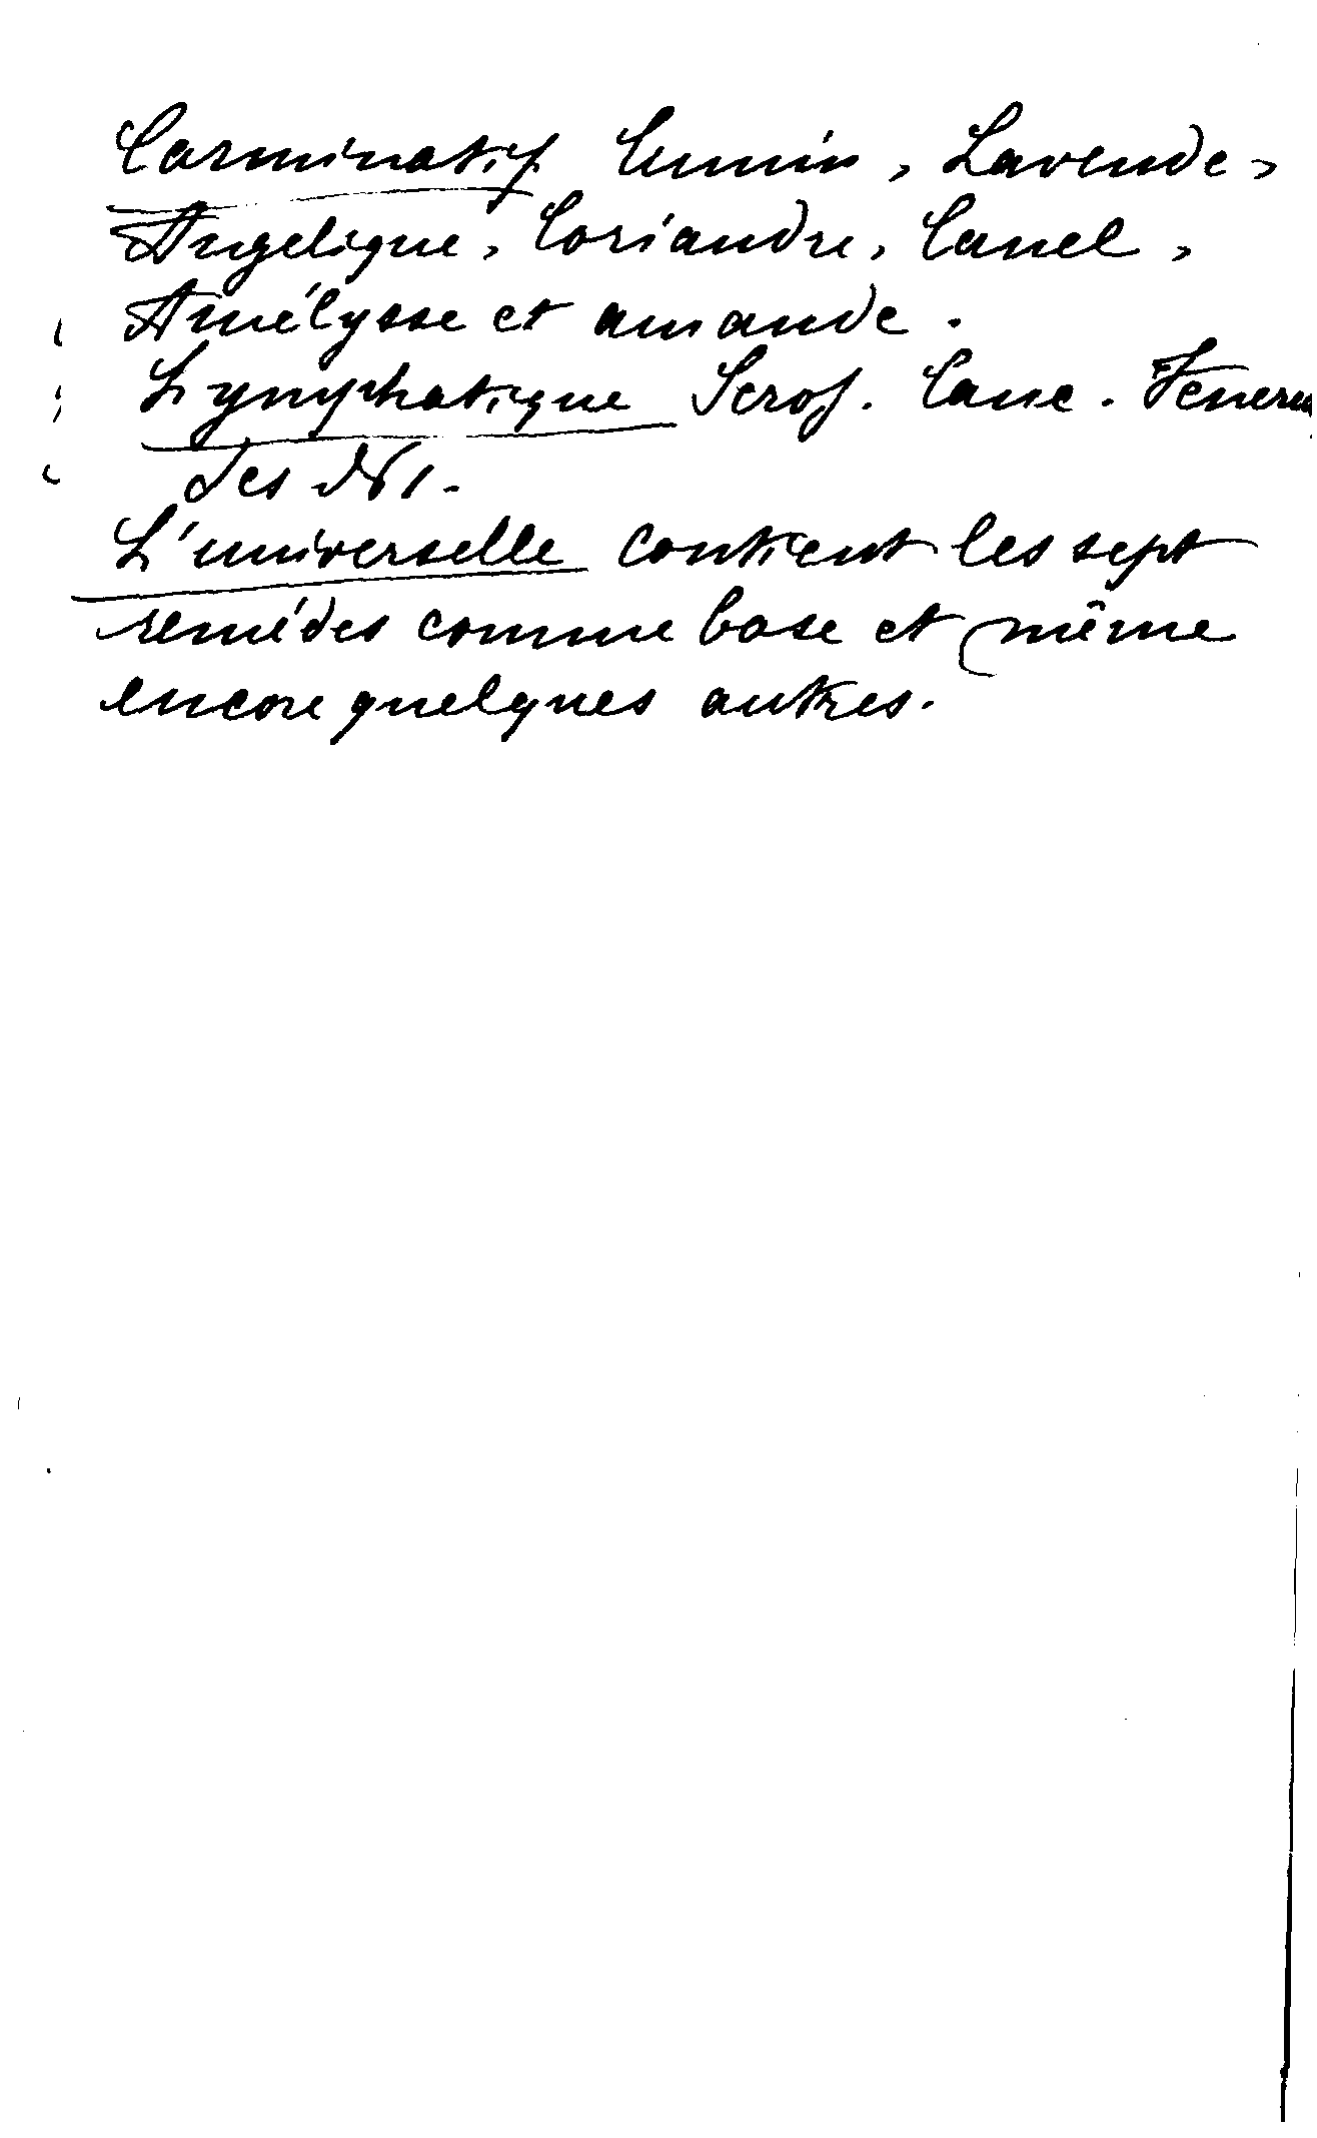 Carminatif Cumin, Lavende,
Angelique, Coriandre, Canel,
Amélysse et amande.
Lymphatique Scrof. Canc.
des N1.
L'universelle contient les sept
remédes comme base et même
encore quelques autres.